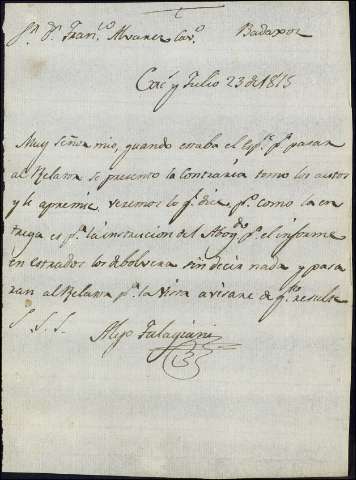 Sr. Dn. Franco. Alvarez Cavo. Badaxoz
Julio 23 de 1815
Muy señor mio, quando estaba el Espte. pa. pasar
al Relator se presento la contraria tomo los autos
y le apremie, veremos lo q. dice, pr. como la en
trega es pa. la instruccion del Abogdo. pa. el informe
en estrados los debolvera sin decir nada y pasa
ran al pa. la vista avisare de qto. resulte
S. S. S.
Alejo